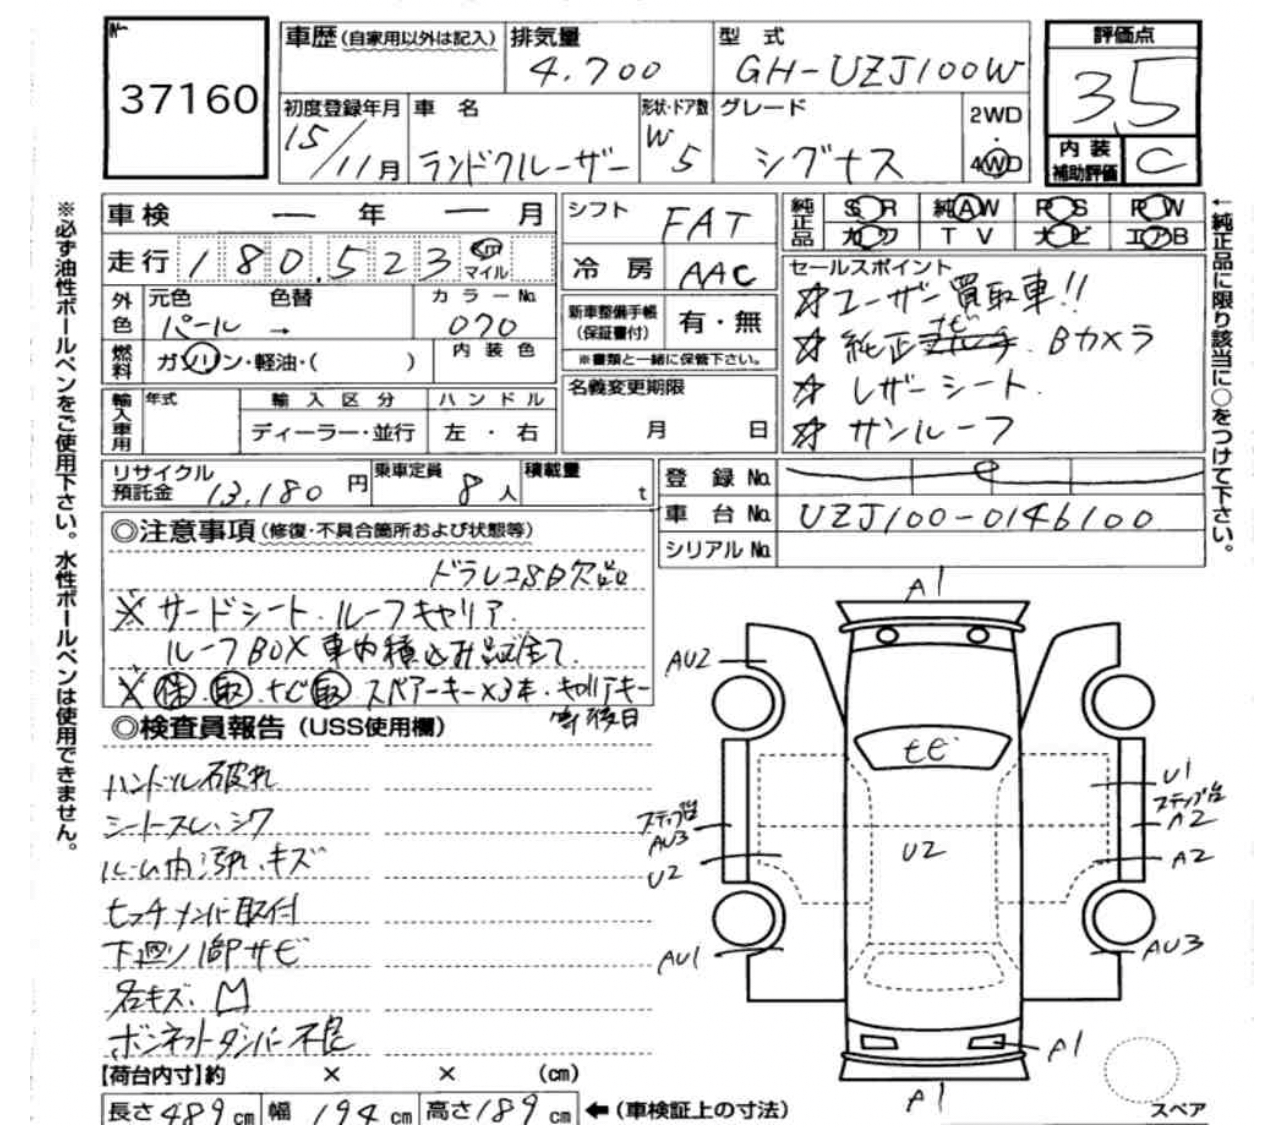 No.
37160
車歴 (自家用以外は記入)
排気量
4.700
型 式
GH-UZJ100W
評価点
3.5
初度登録年月
15/11月
車 名
ランドクルーザー
形状・ドア数
W 5
グレード
シグナス
2WD
・
4WD
内 装
補助評価
C
車検 ー 年 ー 月
シフト FAT
純正品
SR 純AW PS PW
カワ TV ナビ エアB
走行 180.523 km
マイル
冷 房 AAC
セールスポイント
☆ユーザー買取車!!
☆純正ナビ. Bカメラ
☆レザーシート.
☆サンルーフ
外色 元色 色替 カラーNo.
パール → 070
新車整備手帳
(保証書付)
有・無
※書類と一緒に保管下さい。
燃料 ガソリン・軽油・( )
内装色
名義変更期限
月 日
輸入車用 年式 輸入区分 ハンドル
ディーラー・並行 左・右
リサイクル
預託金 13,180 円
乗車定員 8 人
積載量 t
登 録 No.
車 台 No. UZJ100-0146100
シリアル No.
◎注意事項 (修復・不具合箇所および状態等)
ドラレコSD欠品
※サードシート・ルーフキャリア.
ルーフBOX車内積込み
※ 保. 取. ナビ取. スペアーキー×3本・キャリアキー
等後日
◎検査員報告 (USS使用欄)
ハンドル破れ
シートスレ、シワ
ルーム内汚れ、キズ
ヒッチメンバー取付
下廻り1部サビ
各キズ、凹
ボンネットダンパー不良
【荷台内寸】約 × × (cm)
長さ 489 cm 幅 194 cm 高さ 189 cm ←(車検証上の寸法)
A1
AU2
ヒビ
U1
ステップ台
A2
ステップ台
AU3
U2
U2
A2
AU1
AU3
A1
A1
スペア
※必ず油性ボールペンをご使用下さい。水性ボールペンは使用できません。
←純正品に限り該当に○をつけて下さい。